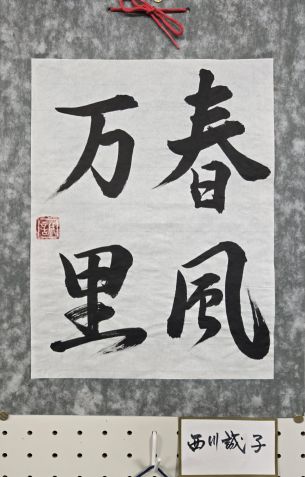 春風
万里
西川誠子